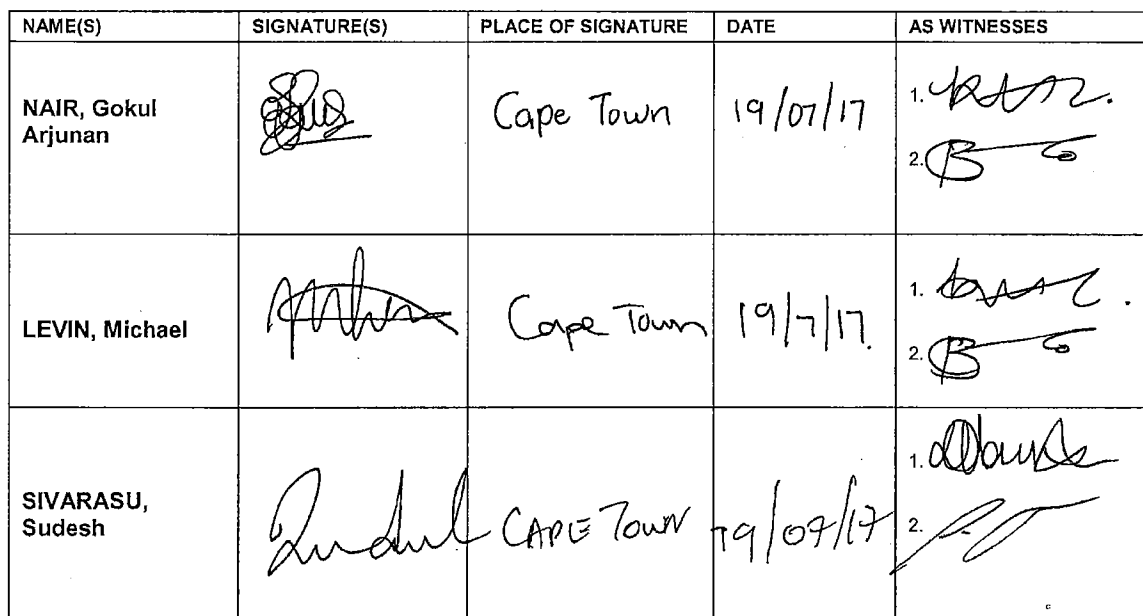 NAME(S) SIGNATURE(S) PLACE OF SIGNATURE DATE AS WITNESSES
NAIR, Gokul Arjunan Cape Town 19/07/17 1.
2.
LEVIN, Michael Cape Town 19/7/17. 1.
2.
SIVARASU, Sudesh CAPE TOWN 19/07/17 1.
2.